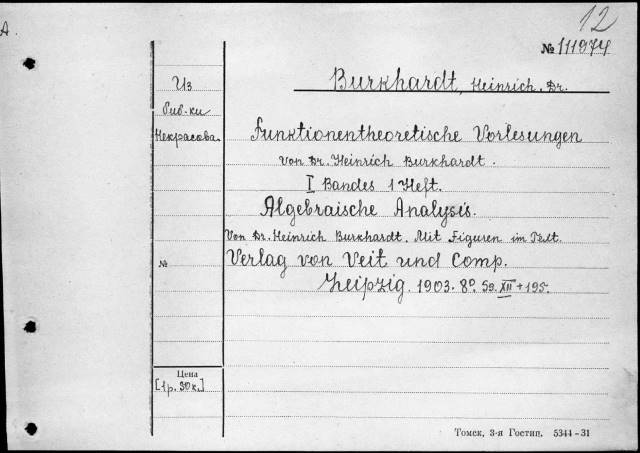 A
12
№ 111974
Burkhardt, Heinrich, Dr.
Из
биб-ки
Некрасова.
Funktionentheoretische Vorlesungen
von Dr. Heinrich Burkhardt.
I Bandes 1 Heft.
Algebraische Analysis.
Von Dr. Heinrich Burkhardt. Mit Figuren im Text.
№
Verlag von Veit und Comp.
Leipzig. 1903. 8°. SS. XII + 195.
Цена
[1 р. 30 к.]
Томск, 3-я Гостип. 5344-31